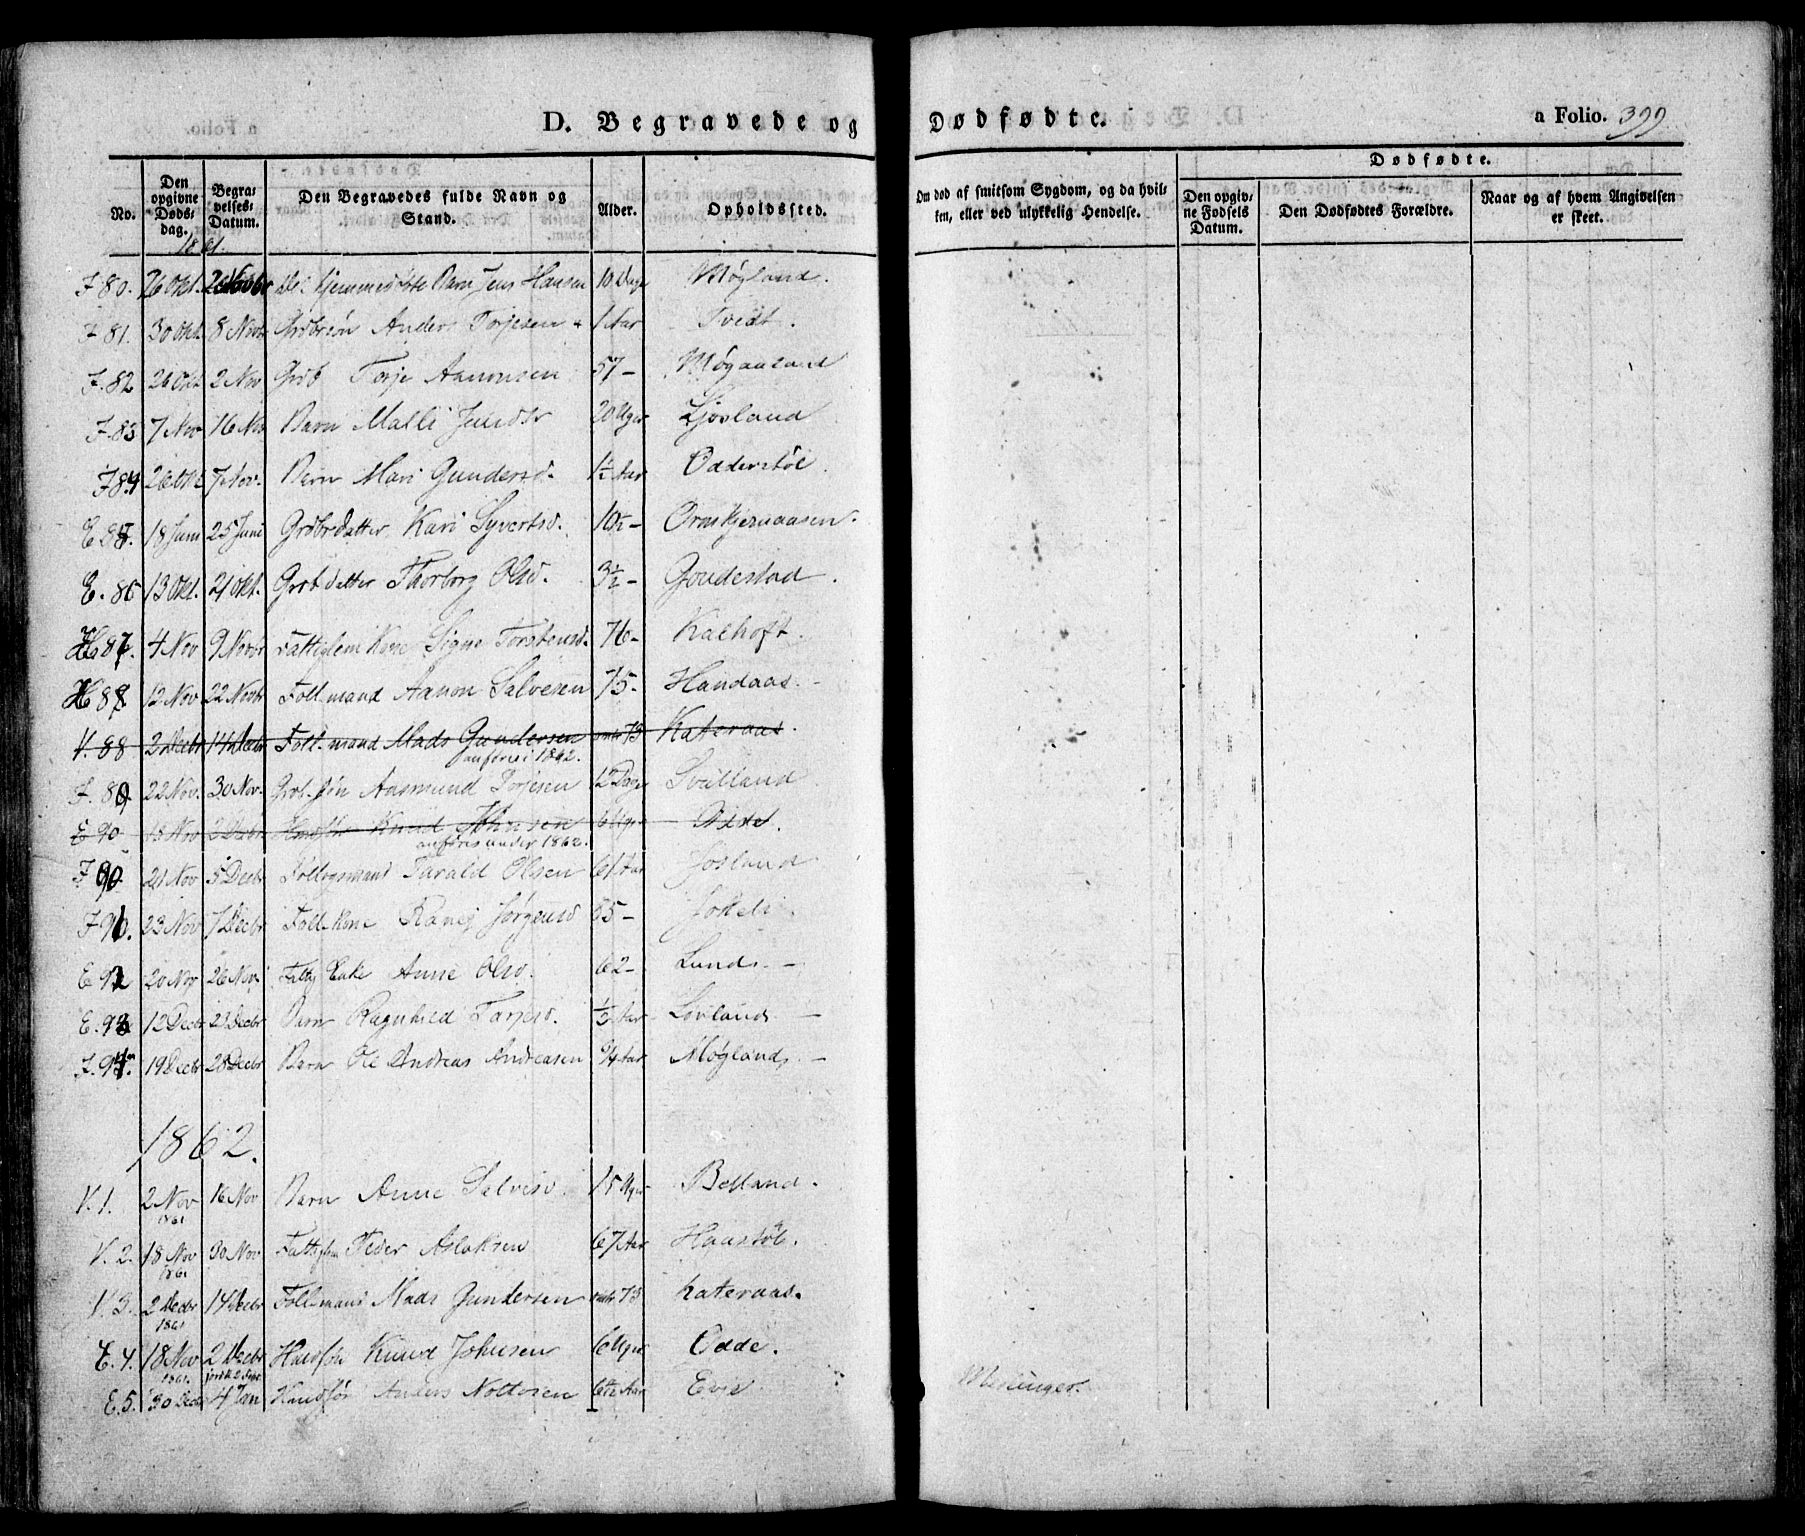 D. Begravede og Dødfødte. a Folio. 399
No. Den opgivne Døds-dag. Begra-velses-Datum. Den Begravedes fulde Navn og Stand. Alder. Opholdssted. Om død af smitsom Sygdom, og da hvil-ken, eller ved ulykkelig Hendelse. Dødfødte. Den opgiv-ne Fødsels Datum. Den Dødfødtes Forældre. Naar og af hvem Angivelsen er skeet.
1861.
I 80. 26 Okt. Barn Jens Hansen 10 Dage Møgland.
I 81. 30 Okt. 8 Novb Grdbrsøn Anders Torjesen 1 Aar Tvedt.
I. 82 26 Okt 2 Nov Grdb Torje Aanonsen 57 - Møgaaland
I. 83 7 Nov 16 Nov Barn Malli 20 Uger Ljosland
I. 84 26 Okt 7 Nov. Barn Mari Gundersd. 1½ Aar Odderstøl.
E 85. 18 Juni 25 Juni Grdbrdatter Kari Syvertsd. 10½ - Ormskjernaasen.
E. 86 13 Okt. 21 Okt. Grdbdatter Thorborg Olsd. 3½ - Goudestad.
H 87. 4 Nov 9 Novbr Fattiglem Kone Signe Torstensd. 76 - Kalhoft.
H 88. 12 Nov 22 NovbrFøll-mand Aanon Salvesen 75 - Handaas.
V. 88 2 Decbr 14 Decbr Føll-mand Mads Gundersen 73 Kateraas.
anføres i 1862.
I. 89 22 Nov. 30 Nov. Grdb. søn Aasmund Torjesen 12 Dage Svalland
E 90 18 Nov 2 Decbr Knud Johnsen 6 Uger Odde.
anføres under 1862.
I 90. 21 Nov 5 Decbr Føllogsmand Tarald Olsen 61 Aar Josland
I. 91. 23 Nov 7 Decbr Føll-kone Ranej Jørgensd 85 -
E 92 20 Nov 26 Nov Fattig Enke Anne Olsd. 62 - Lunds -
E. 93 12 Decbr 23 Decbr Barn Ragnhild Tarjesd. ½ Aar Lovlands -
I. 94. 19 Decbr 28 Decbr Barn Ole Andreas Andreasen ¾ Aar Møglands -
1862.
V. 1. 2 Nov 1861 16 Nov Barn Anne Salvesd. 15 Uger Beiland.
V. 2. 18 Nov 1861 30 Nov Fattiglem Peder Aslaksen 67 Aar Haastøl.
V 3. 2 Decbr 1861 14 Decbr Føll-mand Mads Gundersen 73 Kateraas.
E. 4. 18 Nov 1861. 2 Decbr Huusfsøn Knud Johnsen 6 Uger Odde.
E. 5. 30 Decbr 4 Jan Anders Nottosen 6½ Aar Evje Meslinger.